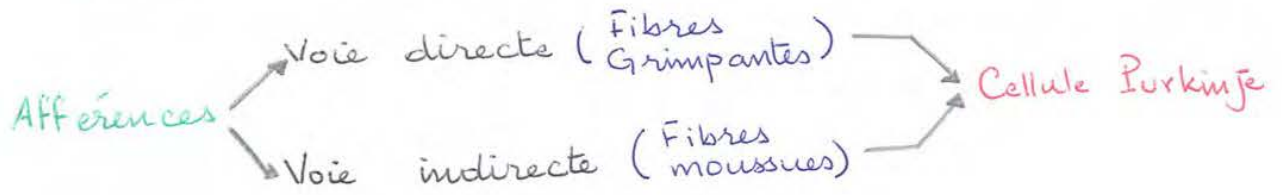 Afférences
Voie directe (Fibres
Grimpantes)
Voie indirecte (Fibres
moussues)
Cellule Purkinje